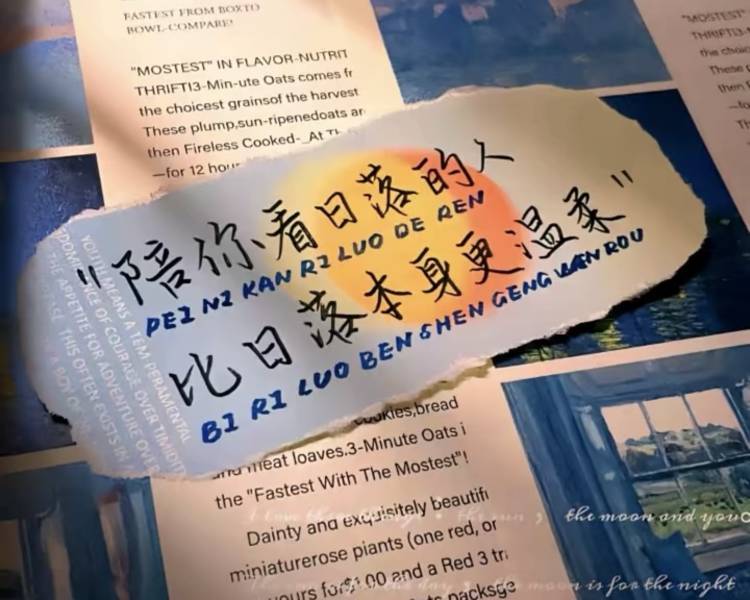 FASTEST FROM BOXTO
BOWL-COMPARE!
"MOSTEST" IN FLAVOR-NUTRIT
THRIFTI3-Min-ute Oats comes fr
the choicest grainsof the harvest
These plump,sun-ripenedoats ar
then Fireless Cooked-_At Th
—for 12 hour
"MOSTEST"
THRIFTI3-
the choic
These p
then F
"陪你看日落的人
PEI NI KAN RI LUO DE REN
比日落本身更温柔"
BI RI LUO BEN SHEN GENG WEN ROU
YOUTH MEANS A TEM PERAMENTAL
DOMINANCE OF COURAGE OVER TIMIDITY
THE APPETITE FOR ADVENTURE OVER
EASE. THIS OFTEN EXISTS IN
A BOY O
cookies,bread
and meat loaves.3-Minute Oats i
the "Fastest With The Mostest"!
Dainty and exquisitely beautifu
miniaturerose plants (one red, or
yours for$1.00 and a Red 3 tr
packsge
I love three things : the sun , the moon and you
The sun is for the day , the moon is for the night